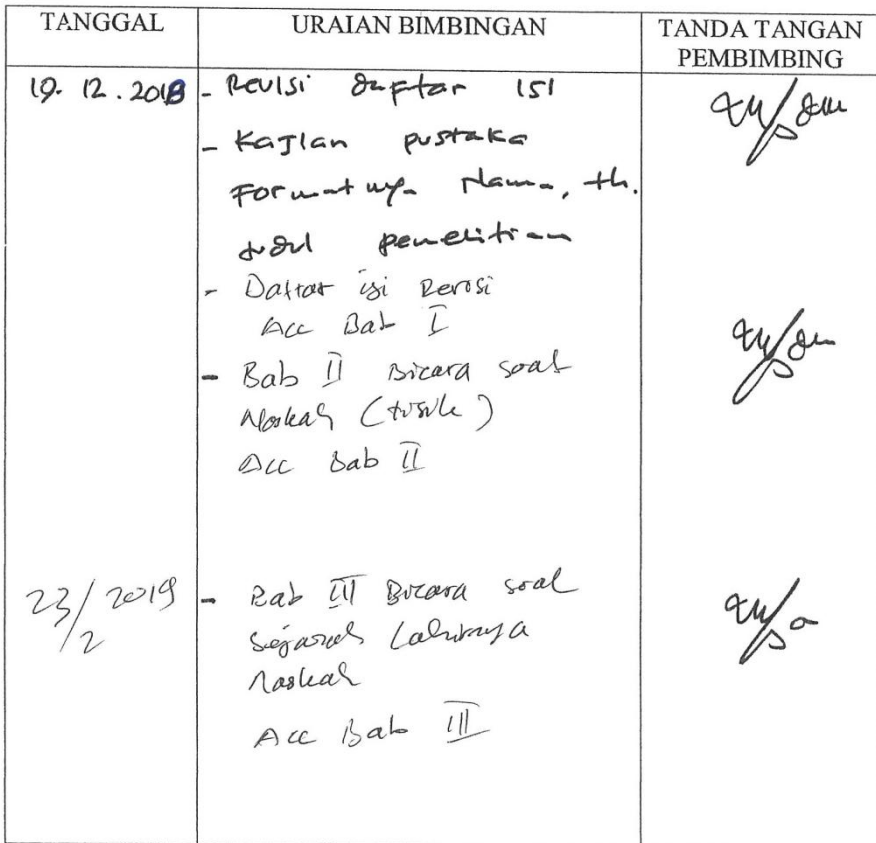 TANGGAL
URAIAN BIMBINGAN
TANDA TANGAN
PEMBIMBING
19. 12. 2018
- Revisi daftar isi
- Kajian pustaka
Formatnya Nama, th.
judul penelitian
- Daftar isi Revisi
Acc Bab I
- Bab II Bicara soal
Naskah ( )
Acc Bab II
23/2 2019
- Bab III Bicara soal
Sejarah Lahirnya
Naskah
Acc Bab III